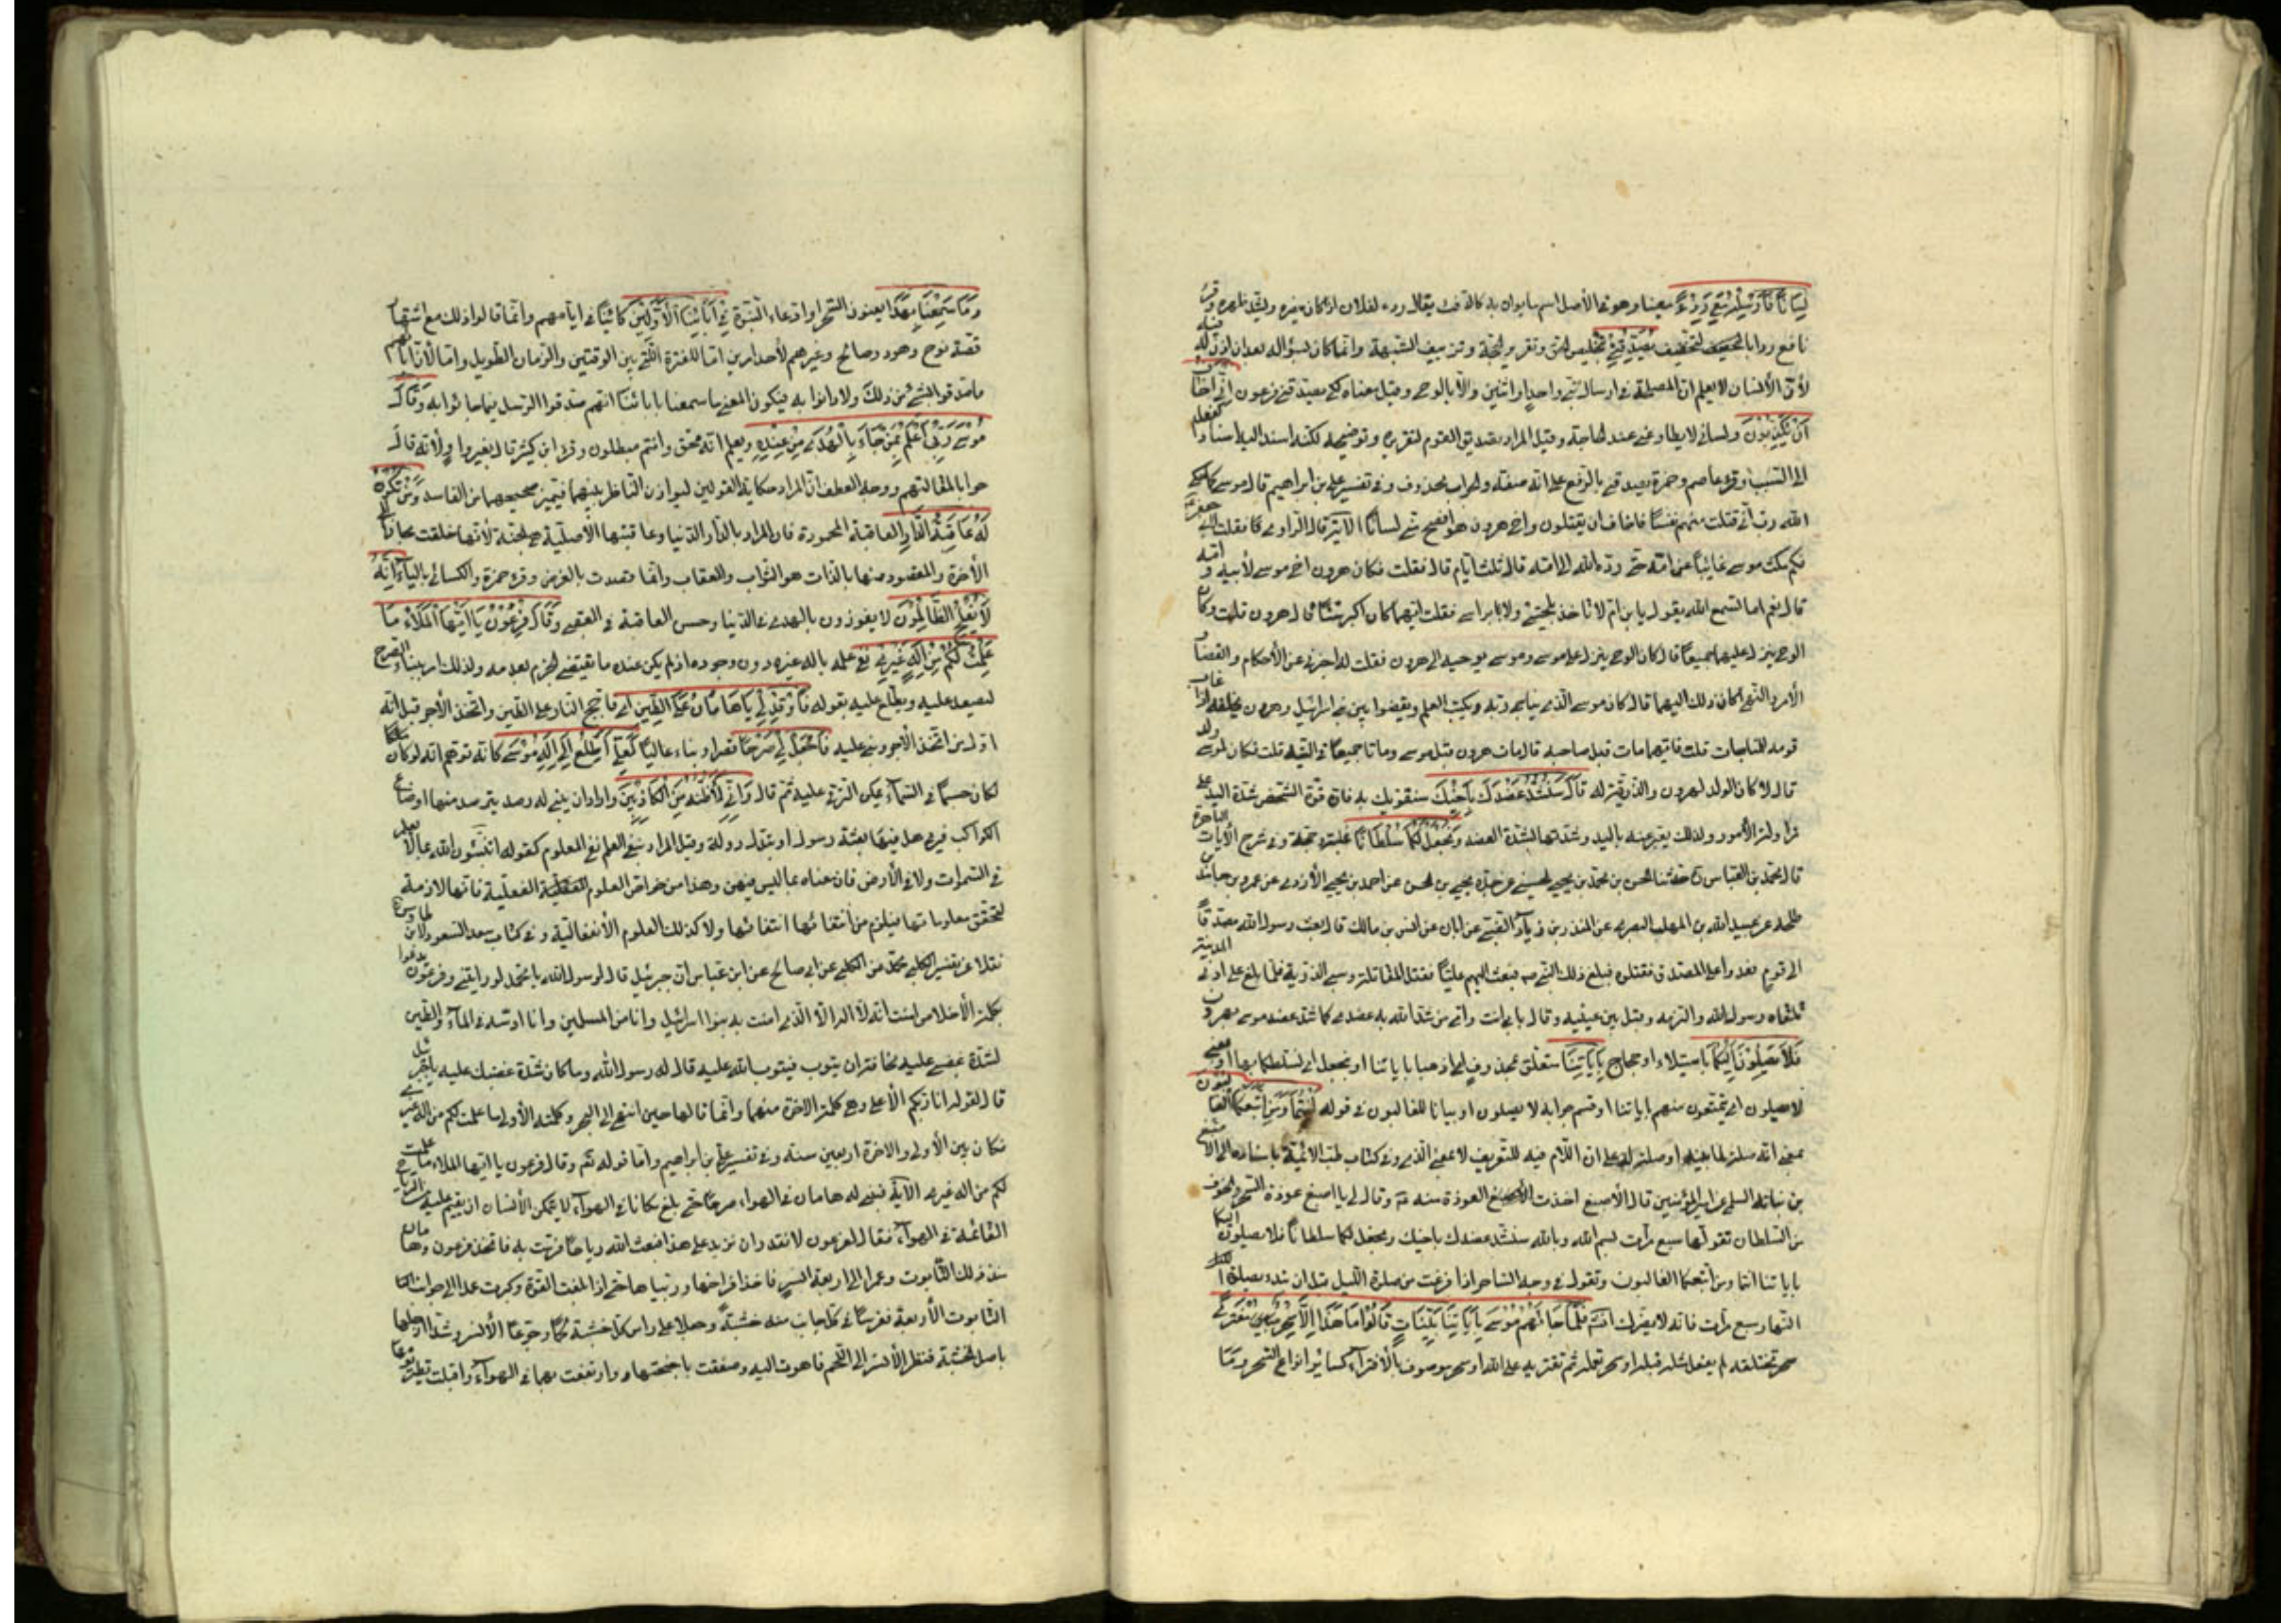 لِسَانًا فَأَرْسِلْهُ مَعِيَ رِدْءًا معينا وهو في الأصل اسم ما يعان به كالدفء يقال ردء لفلان اذا كان ينصره ويشد ظهره وقرء
نافع ردا بالتخفيف يُصَدِّقُنِي بتخليص الحق وتقرير الحجة وتزييف الشبهة وانما كان لسؤاله بعد ان اذن له فيه
لأن الأنسان لا يعلم ان المصلحة في ارسال نبي واحد او اثنين والا بالوحي وقيل معناه لكي يصدقني فرعون إِنِّي أَخَافُ
أَنْ يُكَذِّبُونِ ولساني لا يطاوعني عند المحاجة وقيل المراد تصديق القوم لتقريره وتوضيحه لكنه اسند اليه اسناد الفعل
الى السبب وقرء عاصم وحمزة يصدقني بالرفع على انه صفة والجواب محذوف وفي تفسير علي بن ابراهيم قال موسى كما حكى
الله رب اني قتلت منهم نفسًا فاخاف ان يقتلون واخي هرون هو افصح مني لسانًا الآية قال الراوي فقلت لأبي جعفر ع
فكم مكث موسى غايبًا عن امه حتى رده الله الى امه قال ثلثة ايام قال فقلت فكان هرون اخي موسى لأبيه و امه
قال نعم اما تسمع الله يقول يا بن ام لا تاخذ بلحيتي ولا برأسي فقلت ايهما كان اكبر سنًا قال هرون قلت وكان
الوحي ينزل عليهما جميعًا قال كان الوحي ينزل على موسى وموسى يوحيه الى هرون فقلت له اخبرني عن الأحكام والقضاء
الأمر والنهي كان ذلك اليهما قال كان موسى الذي يناجي ربه ويكتب العلم ويقضي بين بني اسرائيل وهرون يخلفه اذا غاب
قومه للمناجات قلت فايهما مات قبل صاحبه قال مات هرون قبل موسى وماتا جميعًا في التيه قلت فكان لموسى ولد
قال لا كان الولد لهرون والذرية له قَالَ سَنَشُدُّ عَضُدَكَ بِأَخِيكَ سنقويك به فان قوة الشخص بشدة اليد على
مزاولة الأمور ولذلك يعبر عنه باليد وشدتها بشدة العضد وَنَجْعَلُ لَكُمَا سُلْطَانًا غلبة وحجة وفي شرح الآيات الباهرة
قال محمد بن العباس ره حدثنا الحسن بن محمد بن يحيى الحسيني عن جده يحيى بن الحسن عن احمد بن يحيى الأزدي عن عمرو بن حامد بن
طلحة عن عبيد الله بن المهلب البصري عن المنذر بن زياد الضبي عن ابان عن انس بن مالك قال بعث رسول الله مصدقًا
الى قوم فعدوا على المصدق فقتلوه فبلغ ذلك النبي ص فبعث اليهم عليًا فقتل المقاتلة وسبى الذرية فلما بلغ علي ادنى المدينة
تلقاه رسول الله والتزمه وقبل بين عينيه وقال بابي انت وامي من شد الله به عضدي كما شد عضد موسى بهرون
فَلَا يَصِلُونَ إِلَيْكُمَا باستيلاء او حجاج بِآيَاتِنَا متعلق بمحذوف اي اذهبا باياتنا او بنجعل اي نسلطكما بها او بمعنى
لا يصلون اي تمتنعون منهم باياتنا او قسم جوابه لا يصلون او بيانا للغالبون في قوله أَنْتُمَا وَمَنِ اتَّبَعَكُمَا الْغَالِبُونَ
بمعنى انه صلة لما بينه او صلة له على ان اللام فيه للتعريف لا بمعنى الذي وفي كتاب طب الائمة باسناده الى الاصبغ
بن نباتة السلمي عن امير المؤمنين قال الأصبغ اخذت العوذة منه ع وقال لي يا اصبغ عوذة السحر والخوف
من السلطان تقولها سبع مرات بسم الله وبالله سنشد عضدك باخيك ونجعل لكما سلطانًا فلا يصلون اليكما
باياتنا انتما ومن اتبعكما الغالبون وتقول في وجه الساحر اذا فرغت من صلوة الليل قبل ان تبدء بصلوة
النهار سبع مرات فانه لا يضرك انشاء فَلَمَّا جَاءَهُمْ مُوسَى بِآيَاتِنَا بَيِّنَاتٍ قَالُوا مَا هَذَا إِلَّا سِحْرٌ مُفْتَرًى
سحر تختلقه لم يفعل مثله قبل او سحر تعلمه ثم تفتريه على الله او سحر موصوف بالأفتراء كسائر انواع السحر وَمَا
وَمَا سَمِعْنَا بِهَذَا يعنون السحر او ادعاء النبوة فِي آبَائِنَا الْأَوَّلِينَ كائنًا في ايامهم وانما قالوا ذلك مع اشتهار
قصة نوح وهود وصالح وغيرهم لأحد امرين اما للفترة التي بين الوقتين والزمان الطويل واما لأن اباءهم
ما صدقوا بشئ من ذلك ولا دانوا به فيكون المعنى ما سمعنا بابائنا انهم صدقوا الرسل فيما جاؤا به وَقَالَ
مُوسَى رَبِّي أَعْلَمُ بِمَنْ جَاءَ بِالْهُدَى مِنْ عِنْدِهِ ويعلم انه محق وانتم مبطلون وقرء ابن كثير قال بغير واو لأنه قال
جوابا لمقالتهم ووجه العطف ان المراد حكاية القولين ليوازن الناظر بينهما فيتميز صحيحهما من الفاسد وَمَنْ تَكُونُ
لَهُ عَاقِبَةُ الدَّارِ العاقبة المحمودة فان المراد بالدار الدنيا وعاقبتها الأصلية هي الجنة لأنها خلقت مجازًا الى
الأخرة والمقصود منها بالذات هو الثواب والعقاب وانما قصدت بالعرض وقرء حمزة والكسائي بالياء إِنَّهُ
لَا يُفْلِحُ الظَّالِمُونَ لا يفوزون بالهدى في الدنيا وحسن العاقبة في العقبى وَقَالَ فِرْعَوْنُ يَا أَيُّهَا الْمَلَأُ مَا
عَلِمْتُ لَكُمْ مِنْ إِلَهٍ غَيْرِي نفى علمه باله غيره دون وجوده اذ لم يكن عنده ما يقتضي الجزم بعدمه ولذلك امر ببناء الصرح
ليصعد عليه ويطلع عليه بقوله فَأَوْقِدْ لِي يَا هَامَانُ عَلَى الطِّينِ اي فاجج النار على الطين واتخذ الأجر قيل انه
اول من اتخذ الأجر وبنى عليه فَاجْعَلْ لِي صَرْحًا قصرا وبناء عاليًا لَعَلِّي أَطَّلِعُ إِلَى إِلَهِ مُوسَى كانه توهم انه لو كان
لكان جسمًا في السماء يمكن الترقي عليه ثم قال وَإِنِّي لَأَظُنُّهُ مِنَ الْكَاذِبِينَ او اراد ان يبني له رصد يترصد منها اوضاع
الكواكب فيرى هل فيها بعثة رسول او تبدل دولة وقيل المراد بنفي العلم نفي المعلوم كقوله اتنبئون الله بما لا يعلم
في السموات ولا في الأرض فان معناه بما ليس فيهن وهذا من خواص العلوم الفعلية فانها لازمة
لتحقق معلوماتها فيلزم من انتفائها انتفائها ولا كذلك العلوم الأنفعالية وفي كتاب سعد السعود لابن طاوس ره
نقلا عن تفسير الكلبي محمد عن الكلبي عن ابي صالح عن ابن عباس ان جبرئيل قال لرسول الله يا محمد لو رايتني وفرعون يدعوا
بكلمة الأخلاص امنت انه لا اله الا الذي امنت به بنو اسرائيل وانا من المسلمين وانا ادسه في الماء والطين
لشدة غضبي عليه مخافة ان يتوب فيتوب الله عليه قال له رسول الله وما كان شدة غضبك عليه يا جبرئيل
قال لقوله انا ربكم الأعلى وهي كلمته الاخرة منهما وانما قالها حين انتهى الى البحر وكلمته الأولى ما علمت لكم من اله غيري
فكان بين الأولى والاخرة اربعين سنة وفي تفسير علي بن ابراهيم واما قوله ثم وقال فرعون يا ايها الملاء ما علمت
لكم من اله غيري الآية فبنى له هامان في الهواء صرحًا حتى بلغ مكانا في الهواء لا يتمكن الأنسان ان يقيم عليه من الرياح
القائمة في الهواء فقال لفرعون لا نقدر ان نزيد على هذا فبعث الله رياحًا فرمت به فاتخذ فرعون وهامان
عند ذلك التابوت وعمدا الى اربعة انسر فاخذا فراخها وربياها حتى اذا بلغت القوة وكبرت عمدا الى جوانب
التابوت الأربعة فغرسا في كل جانب منه خشبة وجعلا على راس كل خشبة لحمًا وجوعا الأنسر وشدا ارجلها
باصل الخشبة فنظر الأنسر الى اللحم فاهوت اليه وصفقت باجنحتها وارتفعت بهما في الهواء واقبلت تطير يومها